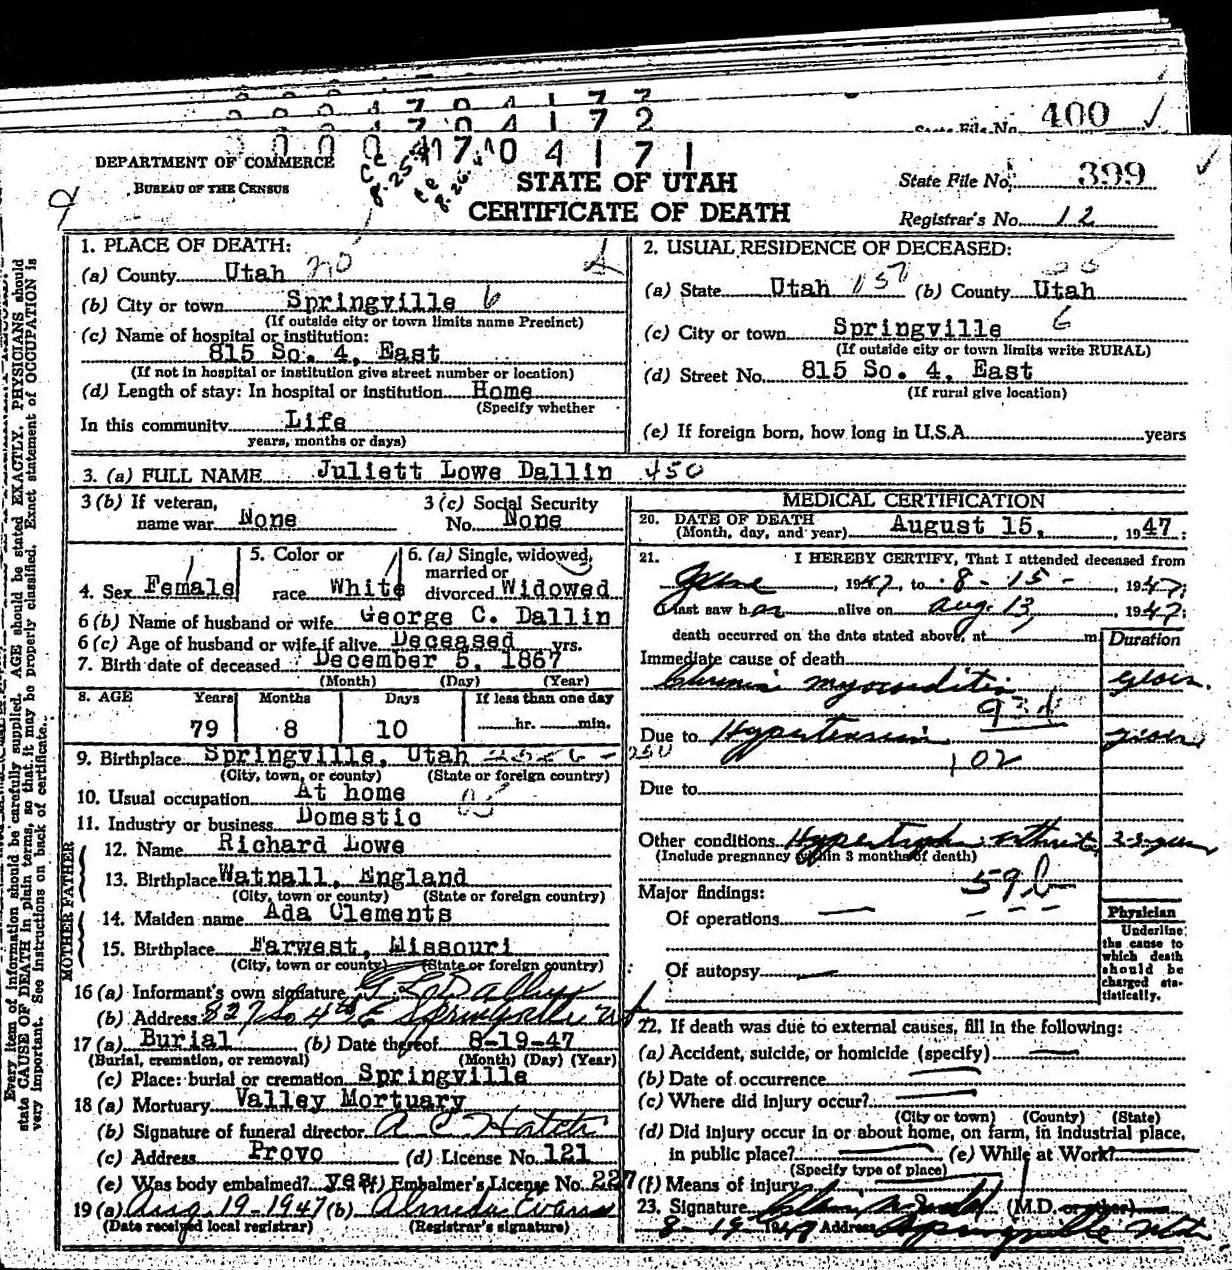 400
704172
704171
DEPARTMENT OF COMMERCE
BUREAU OF THE CENSUS
STATE OF UTAH
CERTIFICATE OF DEATH
State File No. 399
Registrar's No. 12
Every item of information should be carefully supplied. AGE should be stated EXACTLY. PHYSICIANS should
state CAUSE OF DEATH in plain terms, so that it may be properly classified. Exact statement of OCCUPATION is
very important. See instructions on back of certificate.
1. PLACE OF DEATH:
(a) County Utah
(b) City or town Springville 6
(If outside city or town limits name Precinct)
(c) Name of hospital or institution:
815 So. 4, East
(If not in hospital or institution give street number or location)
(d) Length of stay: In hospital or institution Home
(Specify whether
In this community Life
years, months or days)
2. USUAL RESIDENCE OF DECEASED:
(a) State Utah (b) County Utah
(c) City or town Springville 6
(If outside city or town limits write RURAL)
(d) Street No. 815 So. 4, East
(If rural give location)
(e) If foreign born, how long in U.S.A. years
3. (a) FULL NAME Juliett Lowe Dallin 450
3 (b) If veteran,
name war None
3 (c) Social Security
No. None
4. Sex Female
5. Color or
race White
6. (a) Single, widowed,
married or
divorced Widowed
6 (b) Name of husband or wife George C. Dallin
6 (c) Age of husband or wife if alive Deceased yrs.
7. Birth date of deceased December 5, 1867
(Month) (Day) (Year)
8. AGE Years Months Days If less than one day
79 8 10 hr. min.
9. Birthplace Springville, Utah
(City, town, or county) (State or foreign country)
10. Usual occupation At home
11. Industry or business Domestic
FATHER
12. Name Richard Lowe
13. Birthplace Watnall, England
(City, town or county) (State or foreign country)
MOTHER
14. Maiden name Ada Clements
15. Birthplace Farwest, Missouri
(City, town or county) (State or foreign country)
16 (a) Informant's own signature
(b) Address 827 So 4th E Springville Ut
17 (a) Burial (b) Date thereof 8-19-47
(Burial, cremation, or removal) (Month) (Day) (Year)
(c) Place: burial or cremation Springville
18 (a) Mortuary Valley Mortuary
(b) Signature of funeral director A C Hatch
(c) Address Provo (d) License No. 121
(e) Was body embalmed? yes (f) Embalmer's License No. 227
19 (a) Aug. 19-1947 (b) Almeda Evans
(Date received local registrar) (Registrar's signature)
MEDICAL CERTIFICATION
20. DATE OF DEATH
(Month, day, and year) August 15, 1947
21. I HEREBY CERTIFY, That I attended deceased from
June, 1947, to 8-15-1947;
I last saw her alive on Aug. 13, 1947;
death occurred on the date stated above, at m
Duration
Immediate cause of death
Chronic myocarditis
93d
Due to Hypertension
102
Due to
Other conditions Hypertroph. arthritis
(Include pregnancy within 3 months of death)
59b
Major findings:
Of operations
Of autopsy
Physician
Underline
the cause to
which death
should be
charged sta-
tistically.
22. If death was due to external causes, fill in the following:
(a) Accident, suicide, or homicide (specify)
(b) Date of occurrence
(c) Where did injury occur?
(City or town) (County) (State)
(d) Did injury occur in or about home, on farm, in industrial place,
in public place? (e) While at Work?
(Specify type of place)
(f) Means of injury
23. Signature (M.D. or other)
8-19-1947 Address Springville Utah